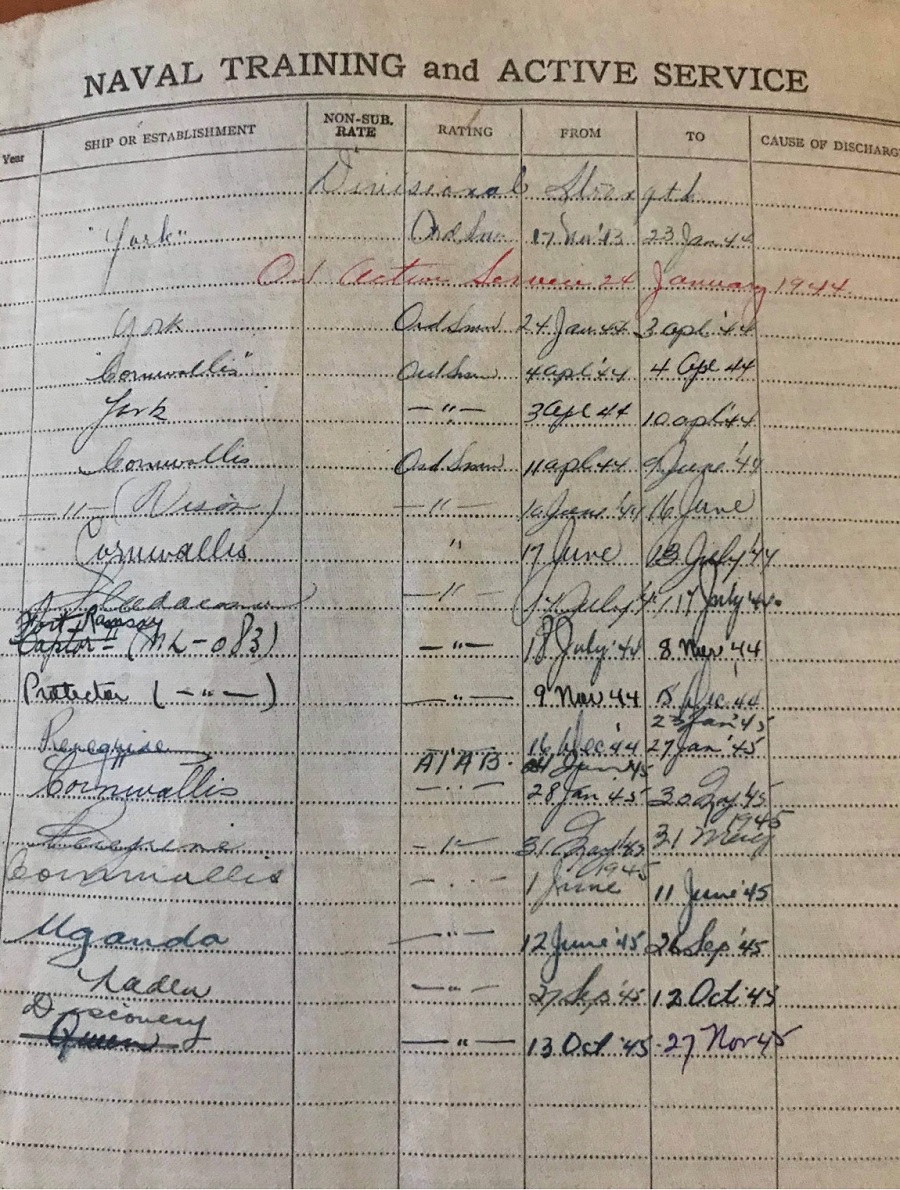 NAVAL TRAINING and ACTIVE SERVICE
Year SHIP OR ESTABLISHMENT NON-SUB. RATE RATING FROM TO CAUSE OF DISCHARG
Divisional Strength
"York" Ord Smn 17 Nov '43 23 Jan 44
On Active Service 24 January 1944.
York Ord Smn 24 Jan 44 3 apl '44
"Cornwallis" Ord Smn 4 apl '44 4 Apl 44
York —"— 3 Apl 44 10 apl '44
Cornwallis Ord Smn 11 apl 44 9 June '44
—"— (Vison) —"— 10 June '44 16 June
Cornwallis " 17 June 13 July '44
Stadacona —"— 14 July '44 17 July '44.
Fort Ramsay
Captor II (ML-083) —"— 18 July '44 8 Nov '44
Protector (—"—) —"— 9 Nov 44 15 Dec '44
23 Jan '45
Peregrine A/AB. 16 Dec '44 27 Jan '45
Cornwallis —"— 28 Jan 45 30 May '45
Peregrine —"— 31 May '45 31 May 1945
Cornwallis —"— 1 June 1945 11 June '45
Uganda —"— 12 June '45 26 Sep '45
Naden —"— 27 Sep '45 12 Oct '45
Discovery
Queen —"— 13 Oct '45 27 Nov 45